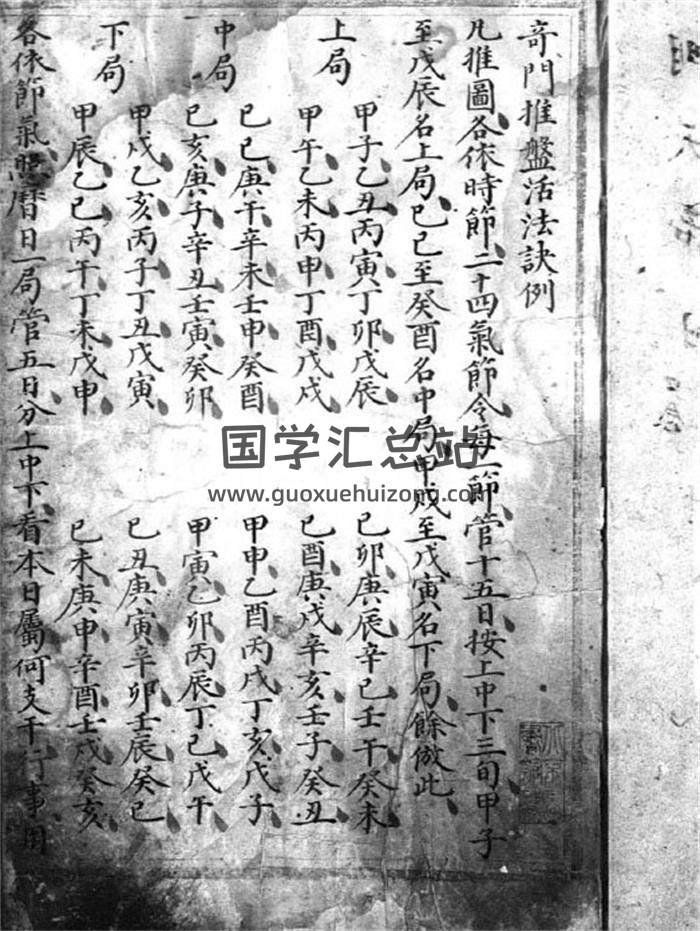 奇門推盤活法訣例
凡推圖各依時節二十四氣節令每一節管十五日按上中下三旬甲子
至戊辰名上局己巳至癸酉名中局甲戌至戊寅名下局餘倣此
上局
甲子乙丑丙寅丁卯戊辰
己卯庚辰辛巳壬午癸未
甲午乙未丙申丁酉戊戌
己酉庚戌辛亥壬子癸丑
中局
己巳庚午辛未壬申癸酉
甲申乙酉丙戌丁亥戊子
己亥庚子辛丑壬寅癸卯
甲寅乙卯丙辰丁巳戊午
下局
甲戌乙亥丙子丁丑戊寅
己丑庚寅辛卯壬辰癸巳
甲辰乙巳丙午丁未戊申
己未庚申辛酉壬戌癸亥
各依節氣照曆日一局管五日分上中下看本日屬何支干行事用
国学汇总站
www.guoxuehuizong.com